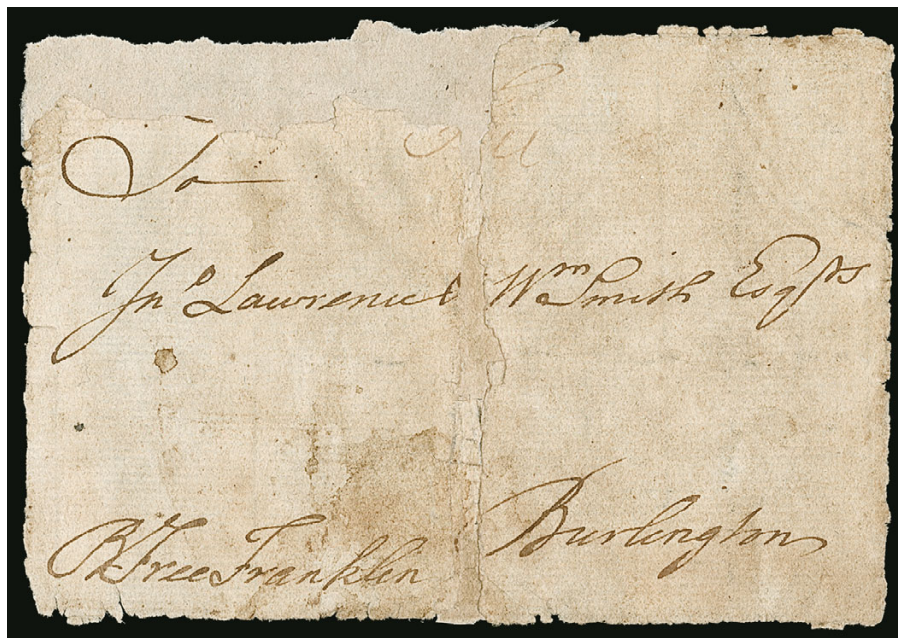 To
Jnº Lawrence & Wm Smith Esqrs
B Free Franklin
Burlington